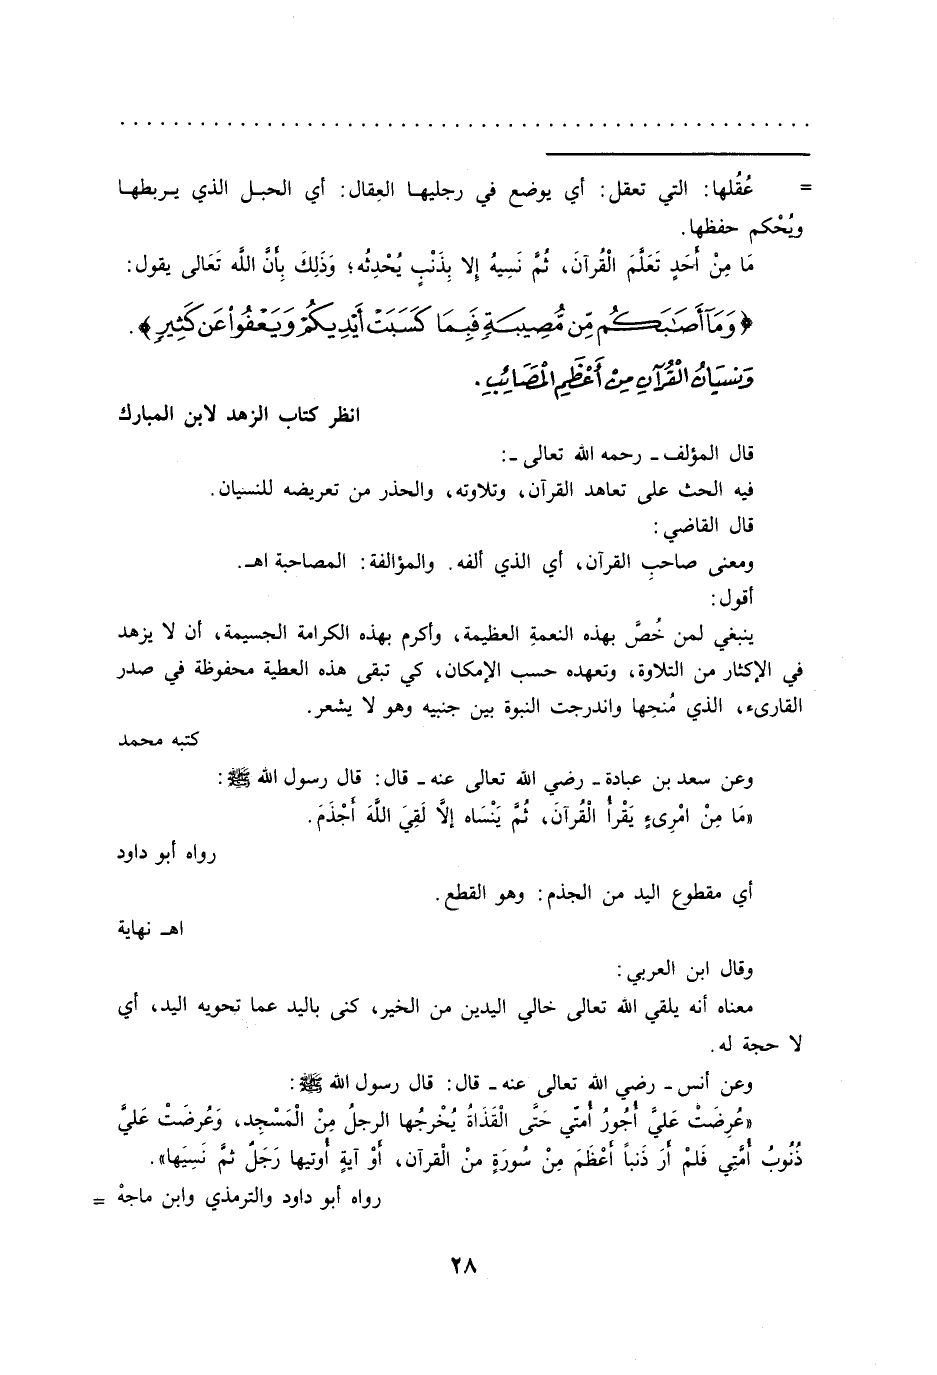 = عُقُلها: التي تعقل: أي يوضع في رجليها العِقال: أي الحبل الذي يربطها
ويُحْكم حفظها.
مَا مِنْ أَحَدٍ تَعَلَّمَ الْقُرآنَ، ثُمَّ نَسِيهُ إلا بِذَنْبٍ يُحْدِثُه؛ وَذَلِكَ بِأَنَّ اللَّه تَعَالى يقول:
﴿وَمَآ أَصَٰبَكُم مِّن مُّصِيبَةٍ فَبِمَا كَسَبَتْ أَيْدِيكُمْ وَيَعْفُوا۟ عَن كَثِيرٍ﴾.
وَنسيَانُ القُرآنِ مِنْ أَعْظَمِ المَصَائِبِ.
انظر كتاب الزهد لابن المبارك
قال المؤلف ـ رحمه الله تعالى ـ:
فيه الحث على تعاهد القرآن، وتلاوته، والحذر من تعريضه للنسيان.
قال القاضي:
ومعنى صاحبِ القرآن، أي الذي ألفه. والمؤالفة: المصاحبة اهـ.
أقول:
ينبغي لمن خُصَّ بهذه النعمةِ العظيمة، وأكرم بهذه الكرامة الجسيمة، أن لا يزهد
في الإكثار من التلاوة، وتعهده حسب الإمكان، كي تبقى هذه العطية محفوظة في صدر
القارىء، الذي مُنحِها واندرجت النبوة بين جنبيه وهو لا يشعر.
كتبه محمد
وعن سعد بن عبادة ـ رضي الله تعالى عنه ـ قال: قال رسول الله ﷺ:
«مَا مِنْ امْرِىءٍ يَقْرأُ الْقُرآنَ، ثُمَّ يَنْسَاه إلَّا لَقِيَ اللَّهَ أَجْذَمَ.
رواه أبو داود
أي مقطوع اليد من الجذم: وهو القطع.
اهـ نهاية
وقال ابن العربي:
معناه أنه يلقي الله تعالى خالي اليدين من الخير، كنى باليد عما تحويه اليد، أي
لا حجة له.
وعن أنس ـ رضي الله تعالى عنه ـ قال: قال رسول الله ﷺ:
«عُرِضَتْ عَليَّ أُجُورُ أُمتّي حَتَّى الْقَذَاةُ يُخْرجُها الرجلُ مِنْ الْمَسْجِد، وَعُرضَتْ عَليَّ
ذُنُوبُ أُمَّتِي فَلمْ أَرَ ذَنباً أَعْظَمَ مِنْ سُورَةٍ منْ الْقرآن، أَوْ آيةٍ أُوتيها رَجَلٌ ثمَّ نَسِيَها».
رواه أبو داود والترمذي وابن ماجهْ =
٢٨